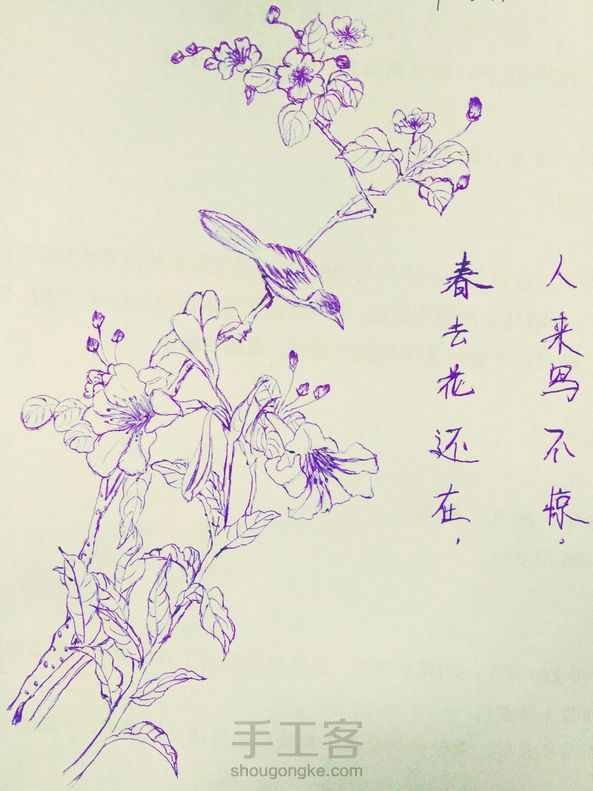 春去花还在，
人来鸟不惊。
手工客
shougongke.com